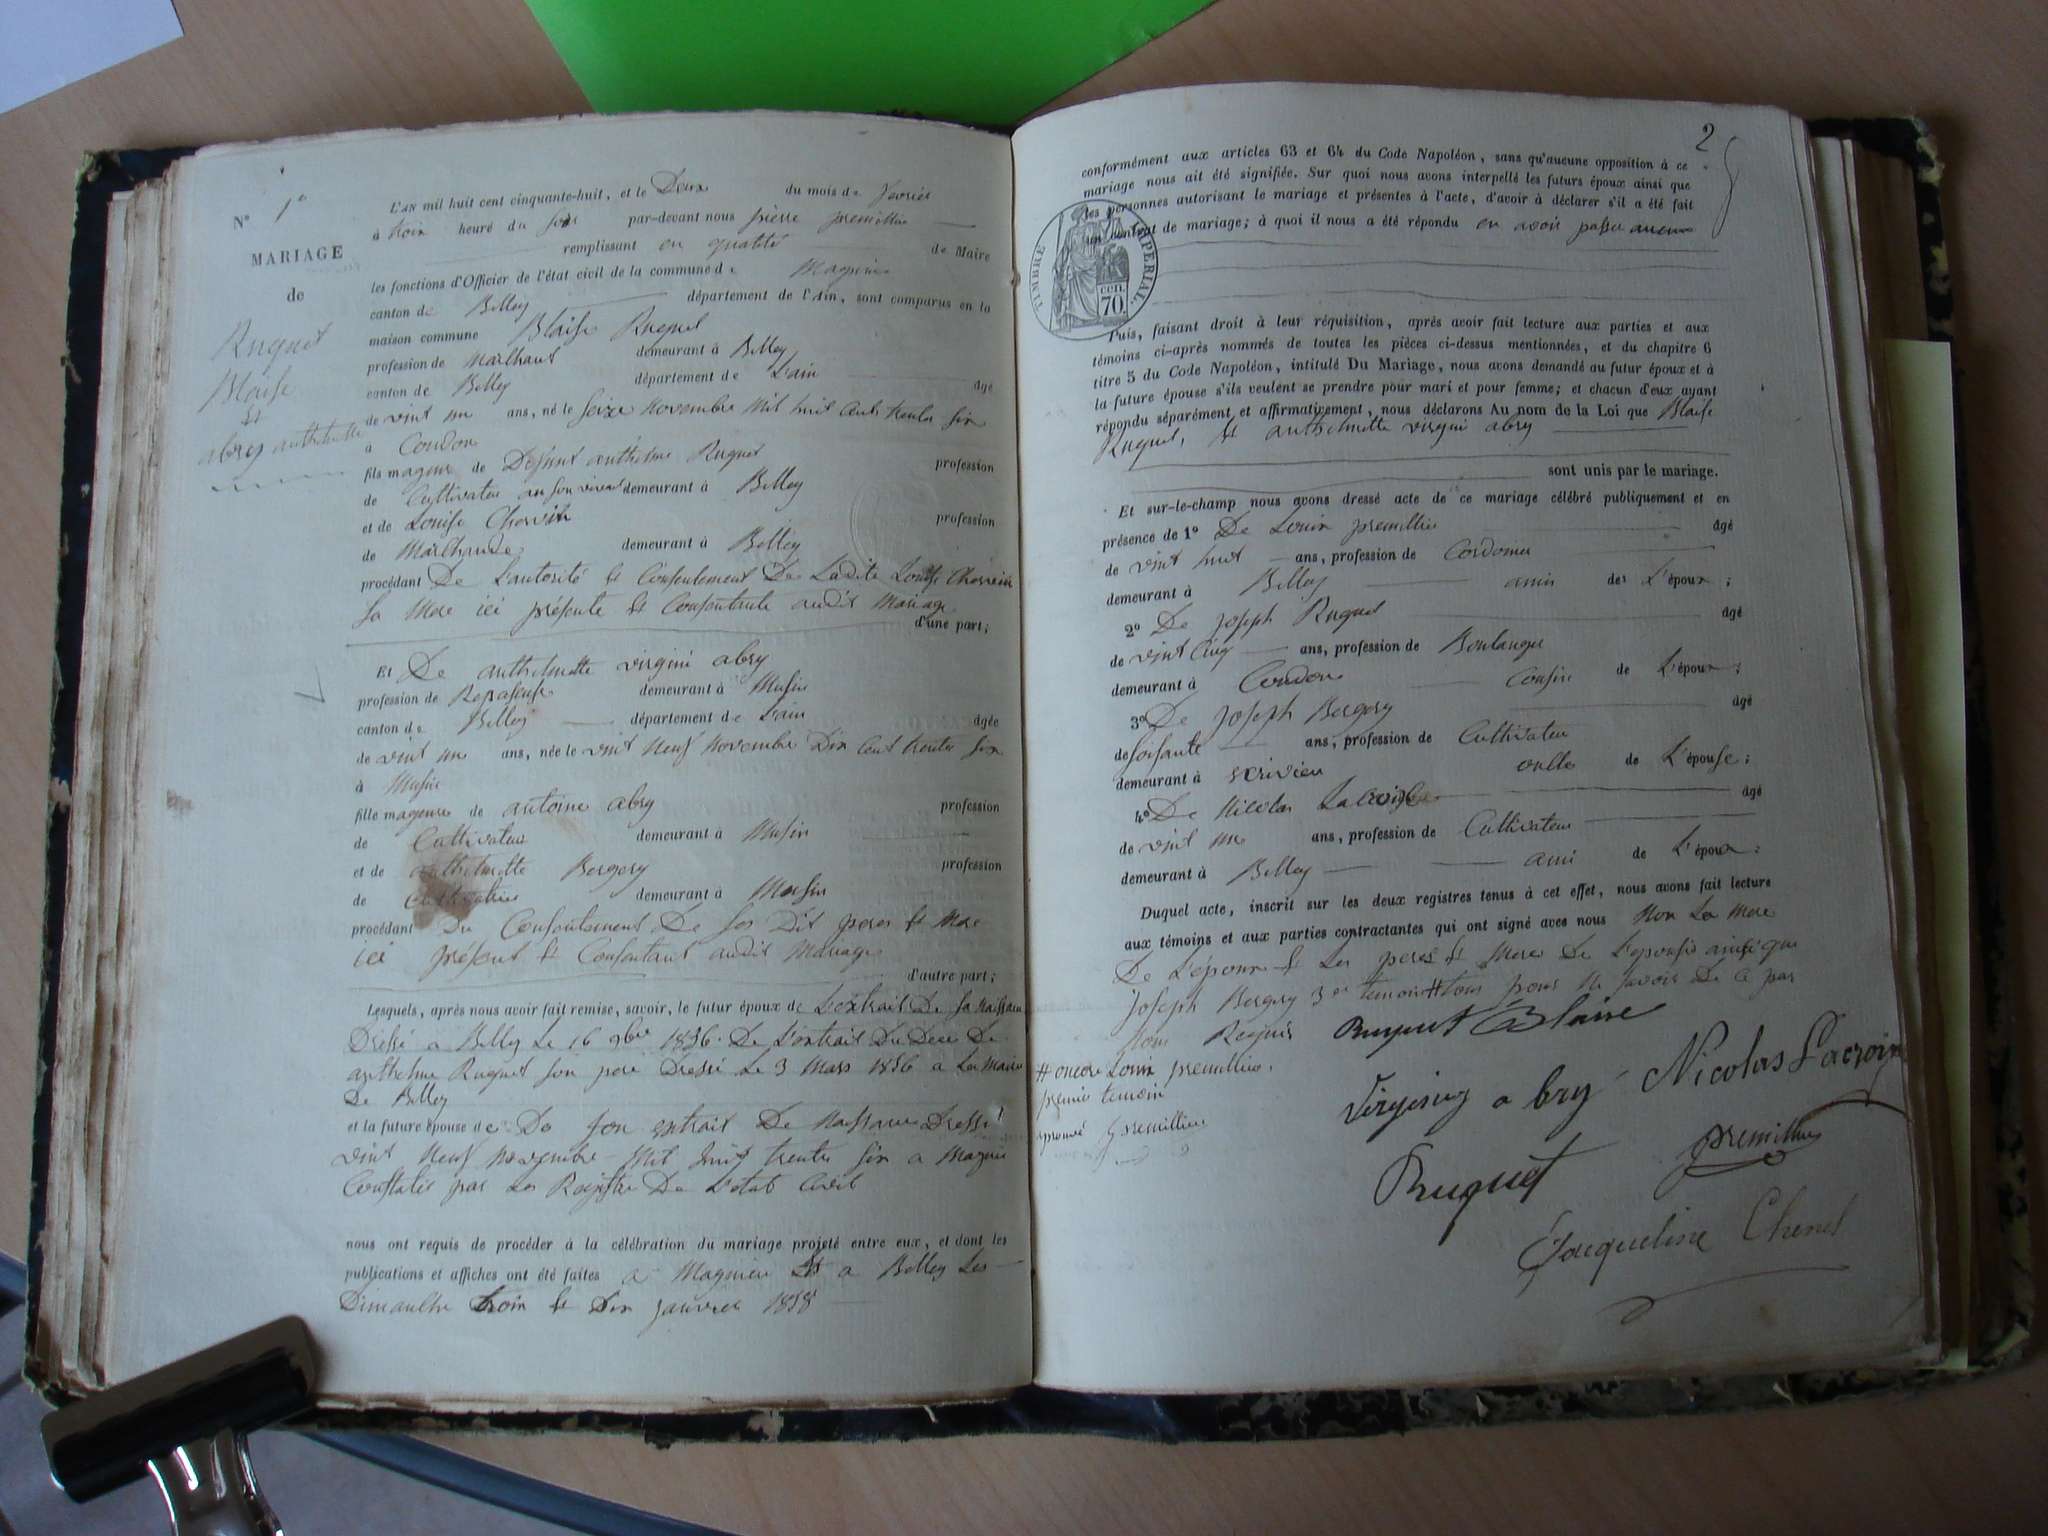 N° 1°
MARIAGE
de
Ruquet
Blaise
Et
abry anthelmette
L'AN mil huit cent cinquante-huit, et le Deux du mois de fevrier
à trois heure du soir par-devant nous pierre premillieu
remplissant en qualité de Maire
les fonctions d'Officier de l'état civil de la commune de Magnieu
canton de Belley département de l'Ain, sont comparus en la
maison commune Blaise Ruquet
profession de Marchant demeurant à Belley
canton de Belley département de L'ain âgé
de vint un ans, né le seize Novembre Mil huit Cent trente six
à Condon
fils mageur de Defunt anthelme Ruquet profession
de Cultivateur an son vivant demeurant à Belley
et de Louise Chervin profession
de Marchande demeurant à Belley
procédant De L'autorité Et Consentement De Ladite Louise Chervin
sa Mere ici présente Et Consentante audit Mariage
d'une part;
Et De anthelmette virgini abry
profession de Repaseuse demeurant à Musin
canton de Belley département de L'ain âgée
de vint un ans, née le vint Neuf Novembre Dix Cent trente six
à Musin
fille mageure de antoine abry profession
de Cultivateur demeurant à Musin
et de anthelmette Bergery profession
de Cultivatrice demeurant à Musin
procédant Du Consentement De ses Dit peres Et Mere
ici présent Et Consentant audit Mariage
d'autre part;
Lesquels, après nous avoir fait remise, savoir, le futur époux de L'extrait De sa Naissance
Dressé a Belley Le 16 9bre 1836. De L'extrait Du Décè De
anthelme Ruquet son pere Dressé Le 3 Mars 1856 a La Mairie
De Belley
et la future épouse de De son extrait De Naissance Dressé
vint Neuf Novembre Mil huit trente six a Magnieu
Constaté par Les Registre De L'etat Civil
nous ont requis de procéder à la célébration du mariage projeté entre eux, et dont les
publications et affiches ont été faites a Magnieu Et a Belley Les
Dimanche trois Et Dix janvier 1858
2
conformément aux articles 63 et 64 du Code Napoléon, sans qu'aucune opposition à ce
mariage nous ait été signifiée. Sur quoi nous avons interpellé les futurs époux ainsi que
les personnes autorisant le mariage et présentes à l'acte, d'avoir à déclarer s'il a été fait
un contrat de mariage; à quoi il nous a été répondu en avoir passer aucun
TIMBRE IMPERIAL.
70 cen.
Puis, faisant droit à leur réquisition, après avoir fait lecture aux parties et aux
témoins ci-après nommés de toutes les pièces ci-dessus mentionnées, et du chapitre 6
titre 5 du Code Napoléon, intitulé Du Mariage, nous avons demandé au futur époux et à
la future épouse s'ils veulent se prendre pour mari et pour femme; et chacun d'eux ayant
répondu séparément et affirmativement, nous déclarons Au nom de la Loi que Blaise
Ruquet, Et anthelmette virgini abry
sont unis par le mariage.
Et sur-le-champ nous avons dressé acte de ce mariage célébré publiquement et en
présence de 1° De Louis premillieu âgé
de vint huit ans, profession de Cordonier
demeurant à Belley amis de L'époux;
2° De joseph Ruquet âgé
de vint Cinq ans, profession de Boulanger
demeurant à Condon Cousin de L'époux;
3° De joseph Bergery âgé
de soisante ans, profession de Cultivateur
demeurant à scrivieu oncle de L'épouse;
4° De Nicolas Lacroix âgé
de vint un ans, profession de Cultivateur
demeurant à Belley ami de L'époux;
Duquel acte, inscrit sur les deux registres tenus à cet effet, nous avons fait lecture
aux témoins et aux parties contractantes qui ont signé avec nous Non La Mere
De L'époux Et Les peres Et Mere De L'épouse ainsi que
joseph Bergery 3me temoin # tous pour Ne savoir De Ce par
Nous Requis
# encore Louis premillieu.
premier temoin
aprouvé premillieu
Ruquet Blaise
Virginiy abry
Nicolas Lacroix
Ruquet
premillieu
Jacqueline Chenet